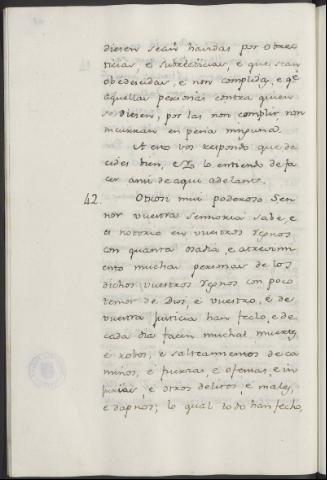 diesen sean havidas por obrec
ticias, é subrecticias, é que sean
obedecidas, é non complidas, é qe.
aquellas personas contra quien
se diesen, por las non complir non
incurran en pena ninguna.
A esto vos respondo que de
cides bien, é Yo lo entiendo de fa
cer ansi de aqui adelante.
42. Otrosi mui poderoso Sen
nor vuestra sennoria sabe, e
es notorio en vuestros regnos
con quanta osadia, e atrevim
iento muchas personas de los
dichos vuestros regnos con poco
temor de Dios, é vuestro, é de
vuestra justicia han fecho, e de
cada dia facen muchas muertes,
é robos, é salteamientos de ca
minos, é fuerzas, é ofensas, e in
jurias, é otros delitos, é males,
é dapnos; lo qual todo han fecho,